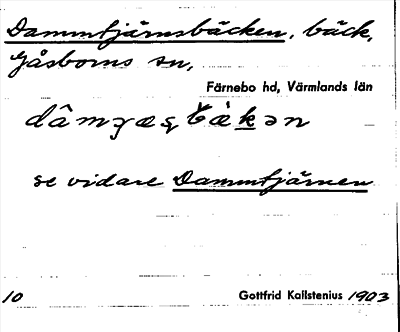 Dammtjärnsbäcken, bäck,
Gåsborns sn,
Färnebo hd, Värmlands län
se vidare Dammtjärnen
10 Gottfrid Kallstenius 1903